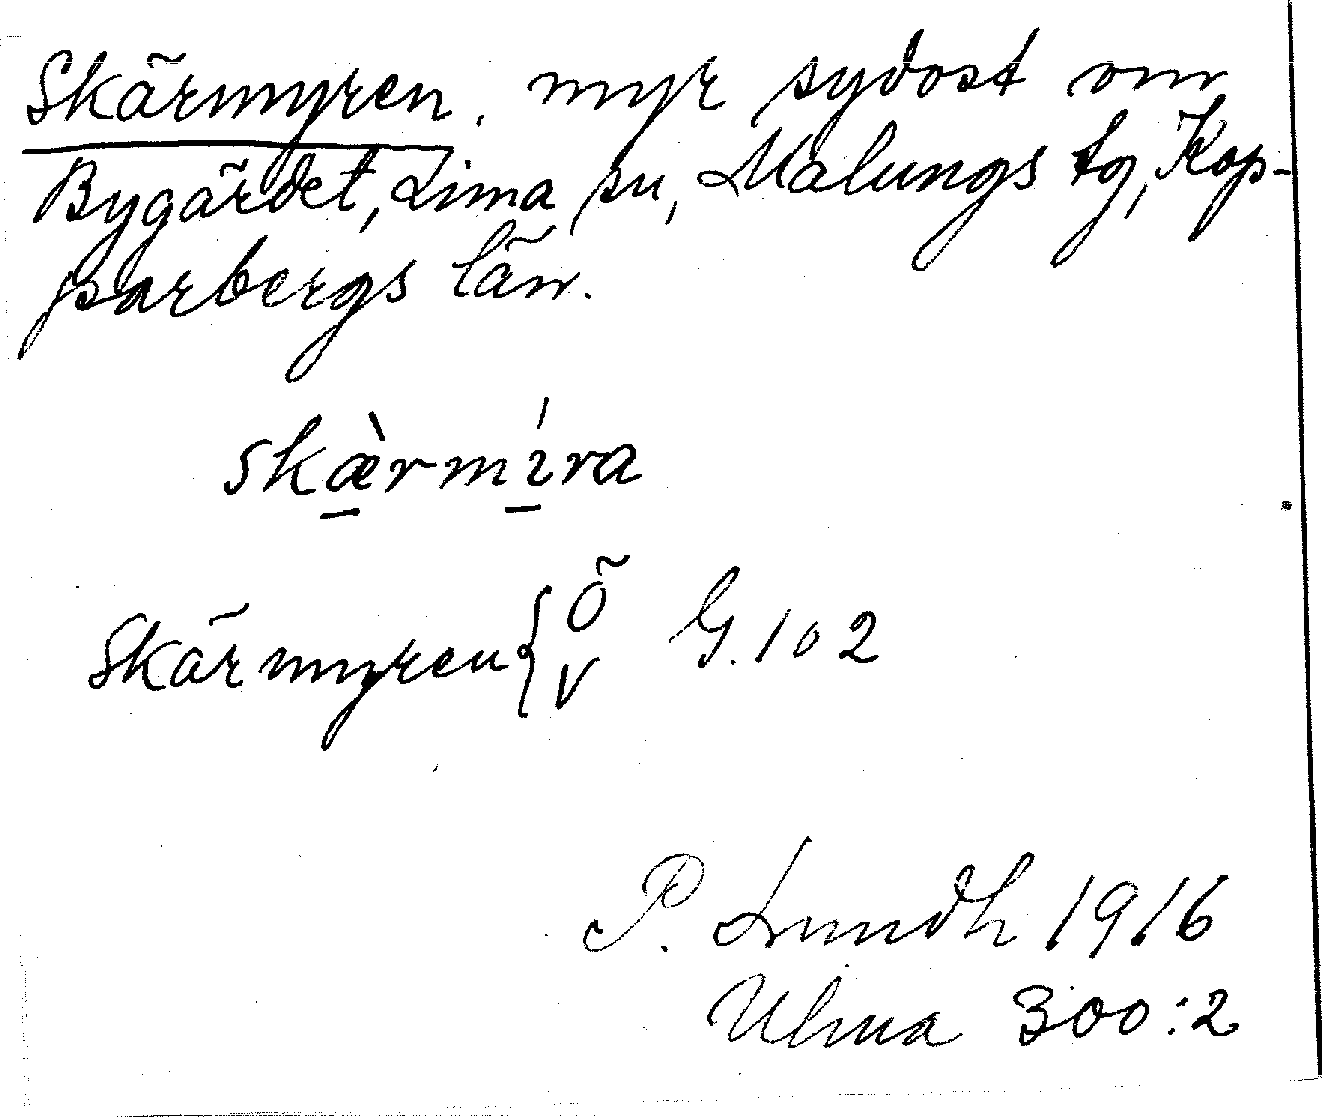 Skärmyren. myr sydost om
Bygärdet, Lima sn, Malungs tg, Kop-
parbergs län.
skæ̀rmı́ra
Skärmyren { Ö G. 102
V
P. Lundh 1916
Ulma 300:2